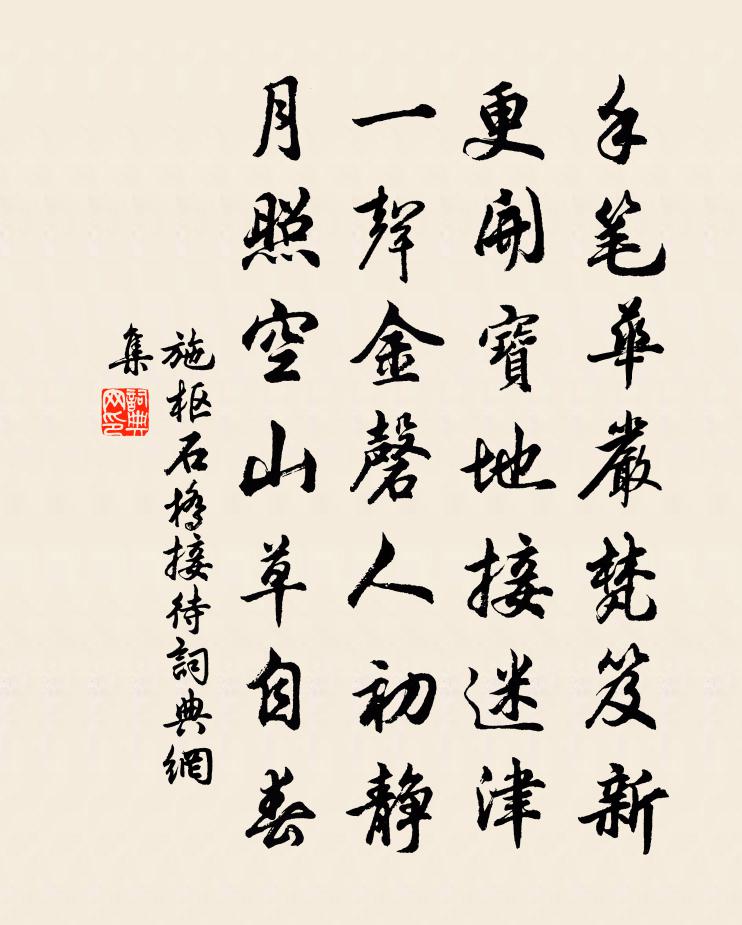 手笔華嚴梵笈新
更開寶地接迷津
一聲金磬人初靜
月照空山草自春
施枢石橋接待詞典網
集
詞典
网印